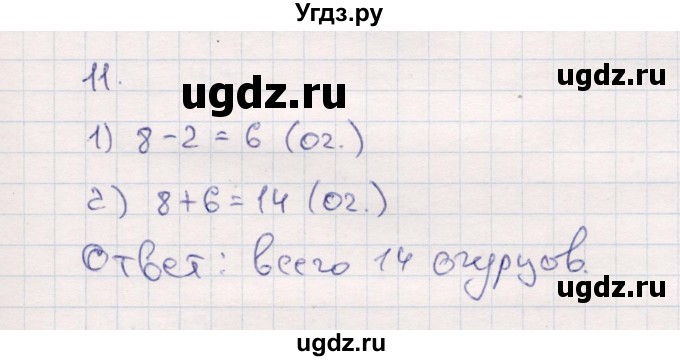 Угдз.ру
11.
ugdz.ru
ugdz.ru
1) 8 - 2 = 6 (ог.)
2) 8 + 6 = 14 (ог.)
Ответ: всего 14 огурцов.
ugdz.ru
ugdz.ru